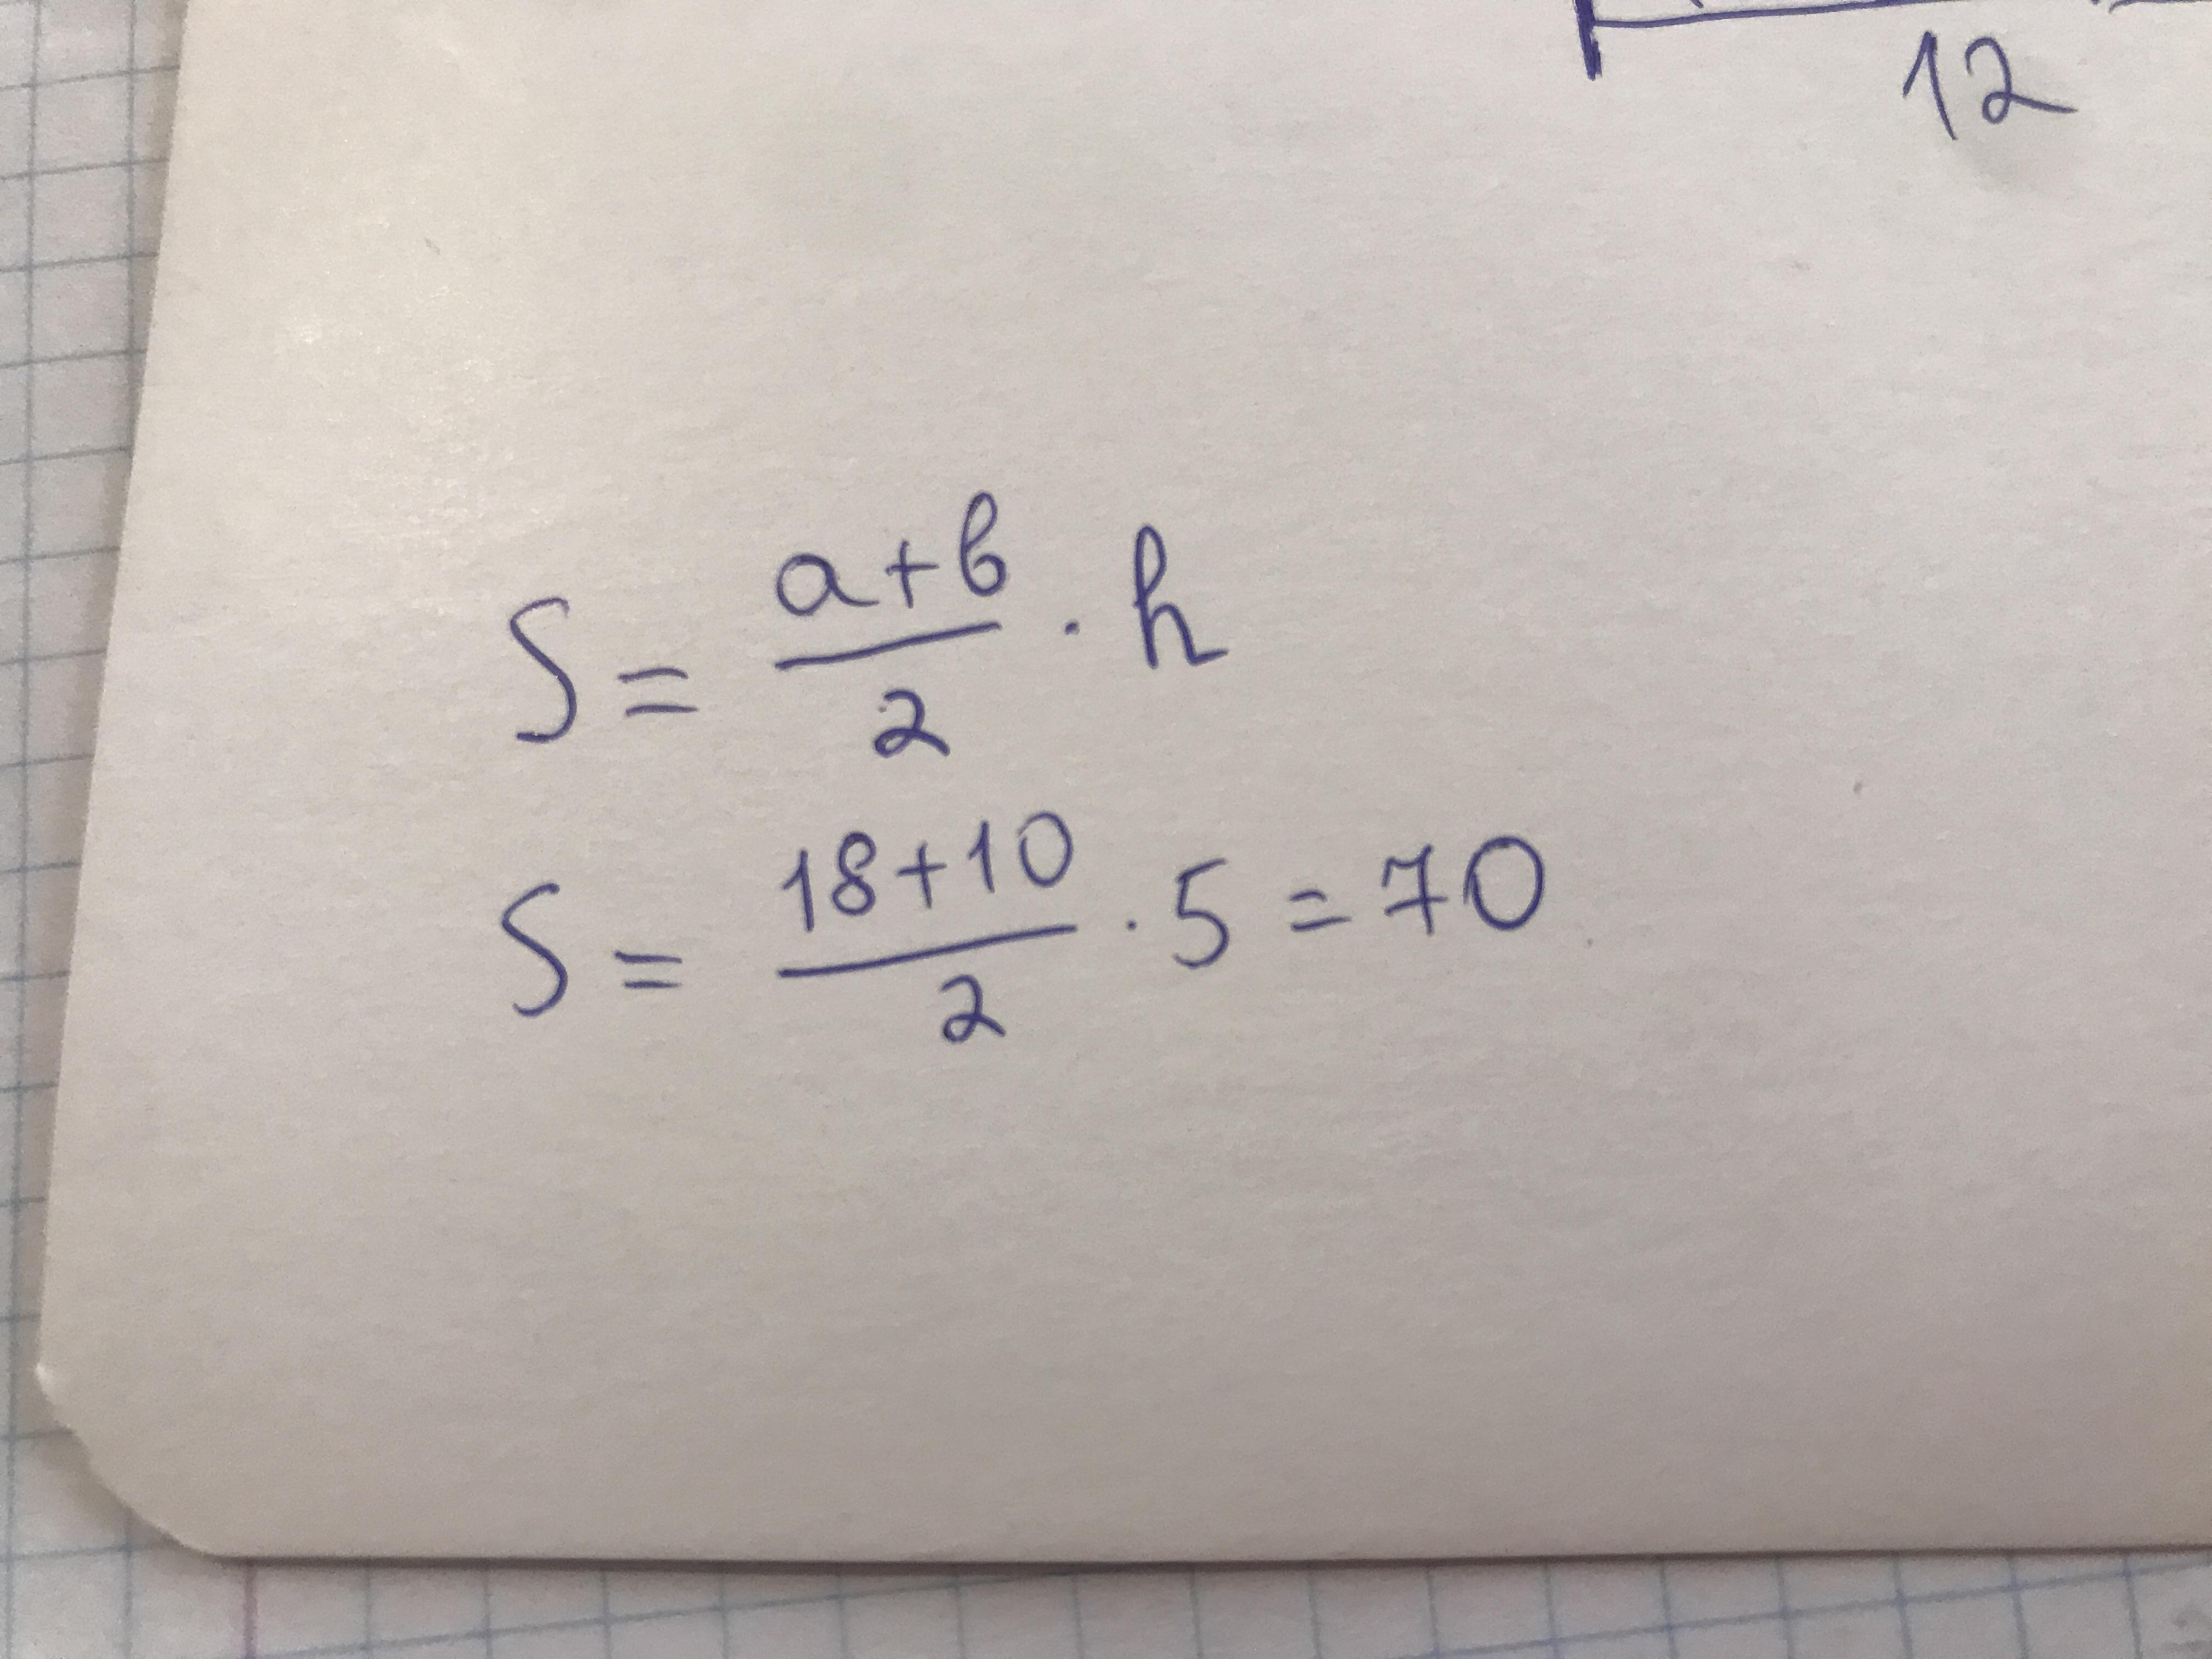 12
S = (a+b)/2 · h
S = (18+10)/2 · 5 = 70